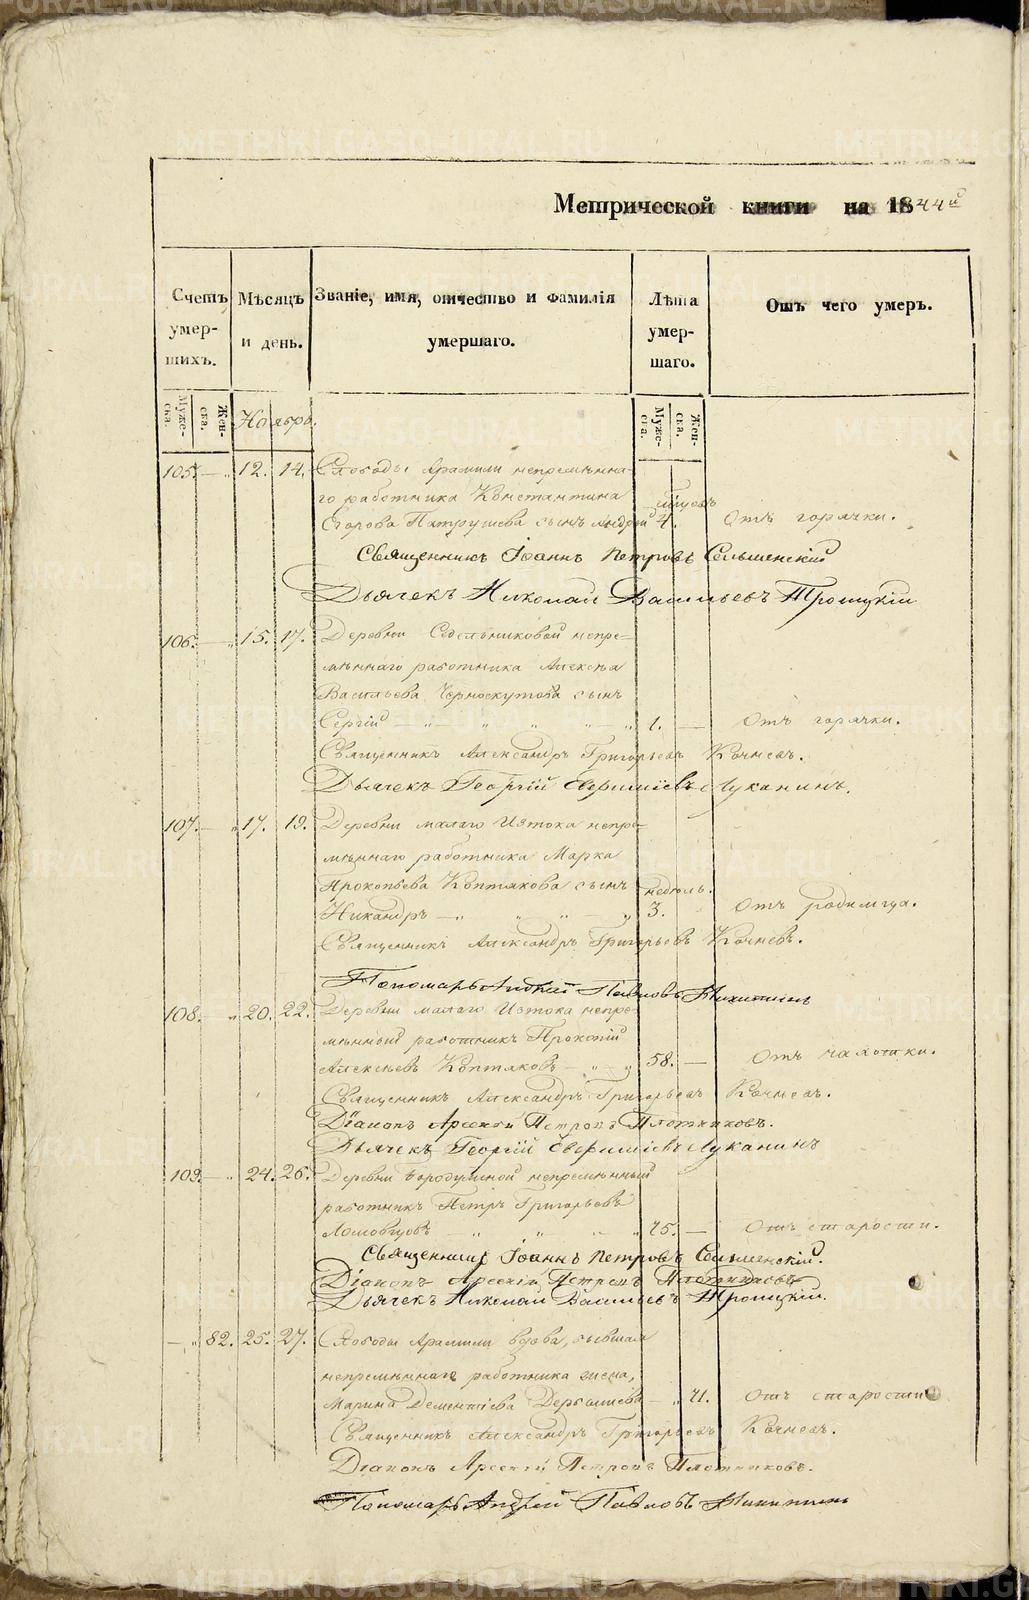 METRIKI.GASO-URAL.RU
Метрической книги на 1844й
Счетъ умер- шихъ.
Мѣсяцъ и день.
Званіе, имя, отчество и фамилія умершаго.
Лѣта умер- шаго.
Отъ чего умеръ.
Муже- ска.
Жен- ска.
Ноябрь.
Муже- ска.
Жен- ска.
105. — „ 12. 14. Слободы Арамили непремѣнна-
го работника Константина мѣсяцъ
Егорова Патрушева сынъ Андрей 4. Отъ горячки.
Священникъ Іоаннъ Петровъ Сельменскій
Дьячекъ Николай Васильевъ Троицкій
106. — „ 15. 17. Деревни Седельниковой непре-
мѣннаго работника Алексѣя
Васильева Черноскутова сынъ
Сергій — „ „ „ „ — „ 1. — Отъ горячки.
Священникъ Александръ Григорьевъ Кочневъ.
Дьячекъ Георгій Евфиміевъ Луканинъ.
107. — „ 17. 19. Деревни малаго Истока непре-
мѣннаго работника Марка
Прокопьева Коптякова сынъ недѣль.
Никандръ — „ „ „ — „ 3. „ Отъ родимца.
Священникъ Александръ Григорьевъ Кочневъ.
Пономарь Андрей Павловъ Никитинъ
108. — „ 20. 22. Деревни малаго Истока непре-
мѣнный работникъ Прокопій
Алексѣевъ Коптяковъ — „ — „ 58. — Отъ чахотки.
Священникъ Александръ Григорьевъ Кочневъ.
Діаконъ Арсеній Петровъ Плотниковъ.
Дьячекъ Георгій Евфиміевъ Луканинъ
109. — „ 24. 26. Деревни Бородулиной непремѣнный
работникъ Петръ Григорьевъ
Ломовцовъ — „ „ — „ 75. — Отъ старости.
Священникъ Іоаннъ Петровъ Сельменскій.
Діаконъ Арсеній Петровъ Плотниковъ
Дьячекъ Николай Васильевъ Троицкій.
— „ 82. 25. 27. Слободы Арамили вдова, бывшаго
непремѣннаго работника жена,
Марина Дементіева Дерябина — „ 71. Отъ старости
Священникъ Александръ Григорьевъ Кочневъ.
Діаконъ Арсеній Петровъ Плотниковъ.
Пономарь Андрей Павловъ Никитинъ